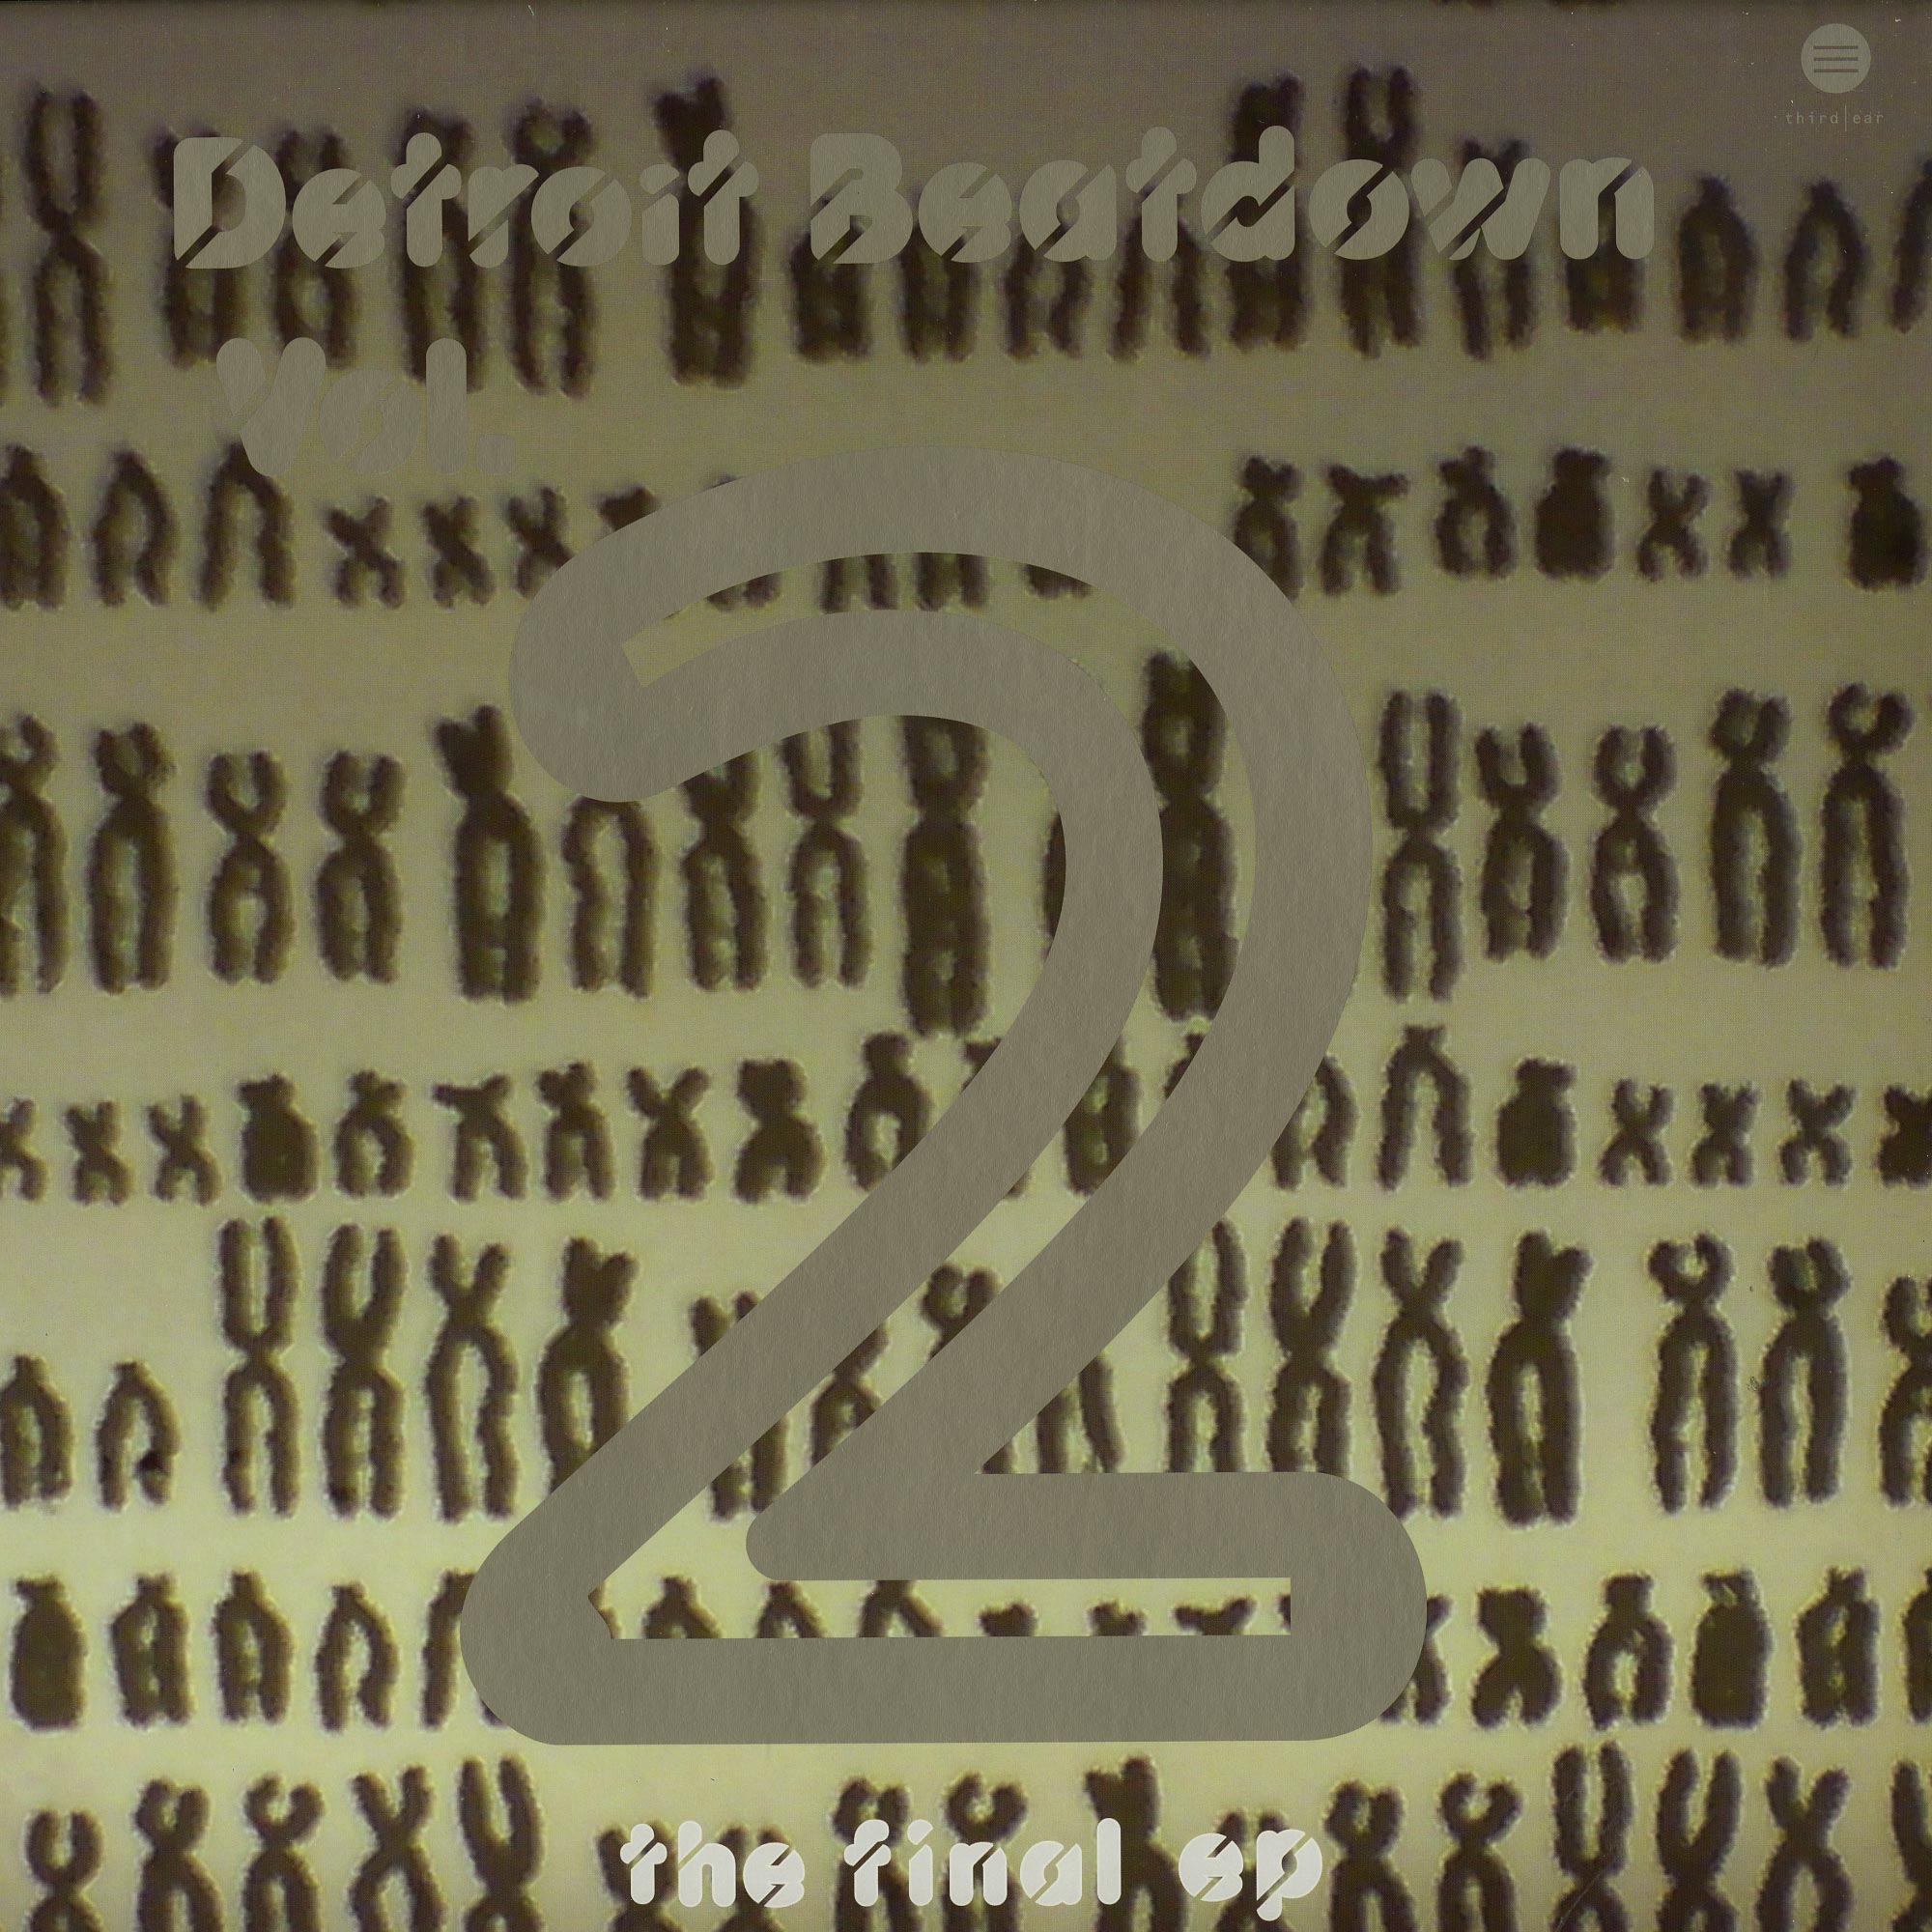 third|ear
Detroit Beatdown
Vol.
2
the final ep